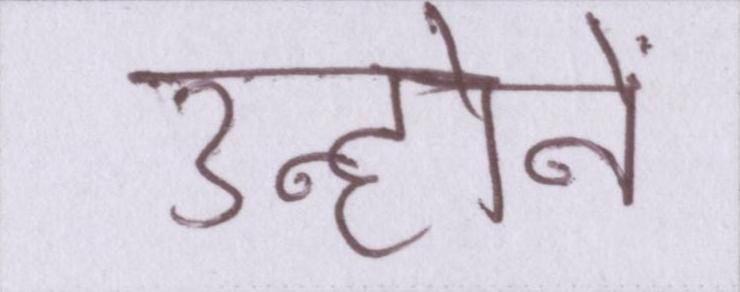 उन्होनें